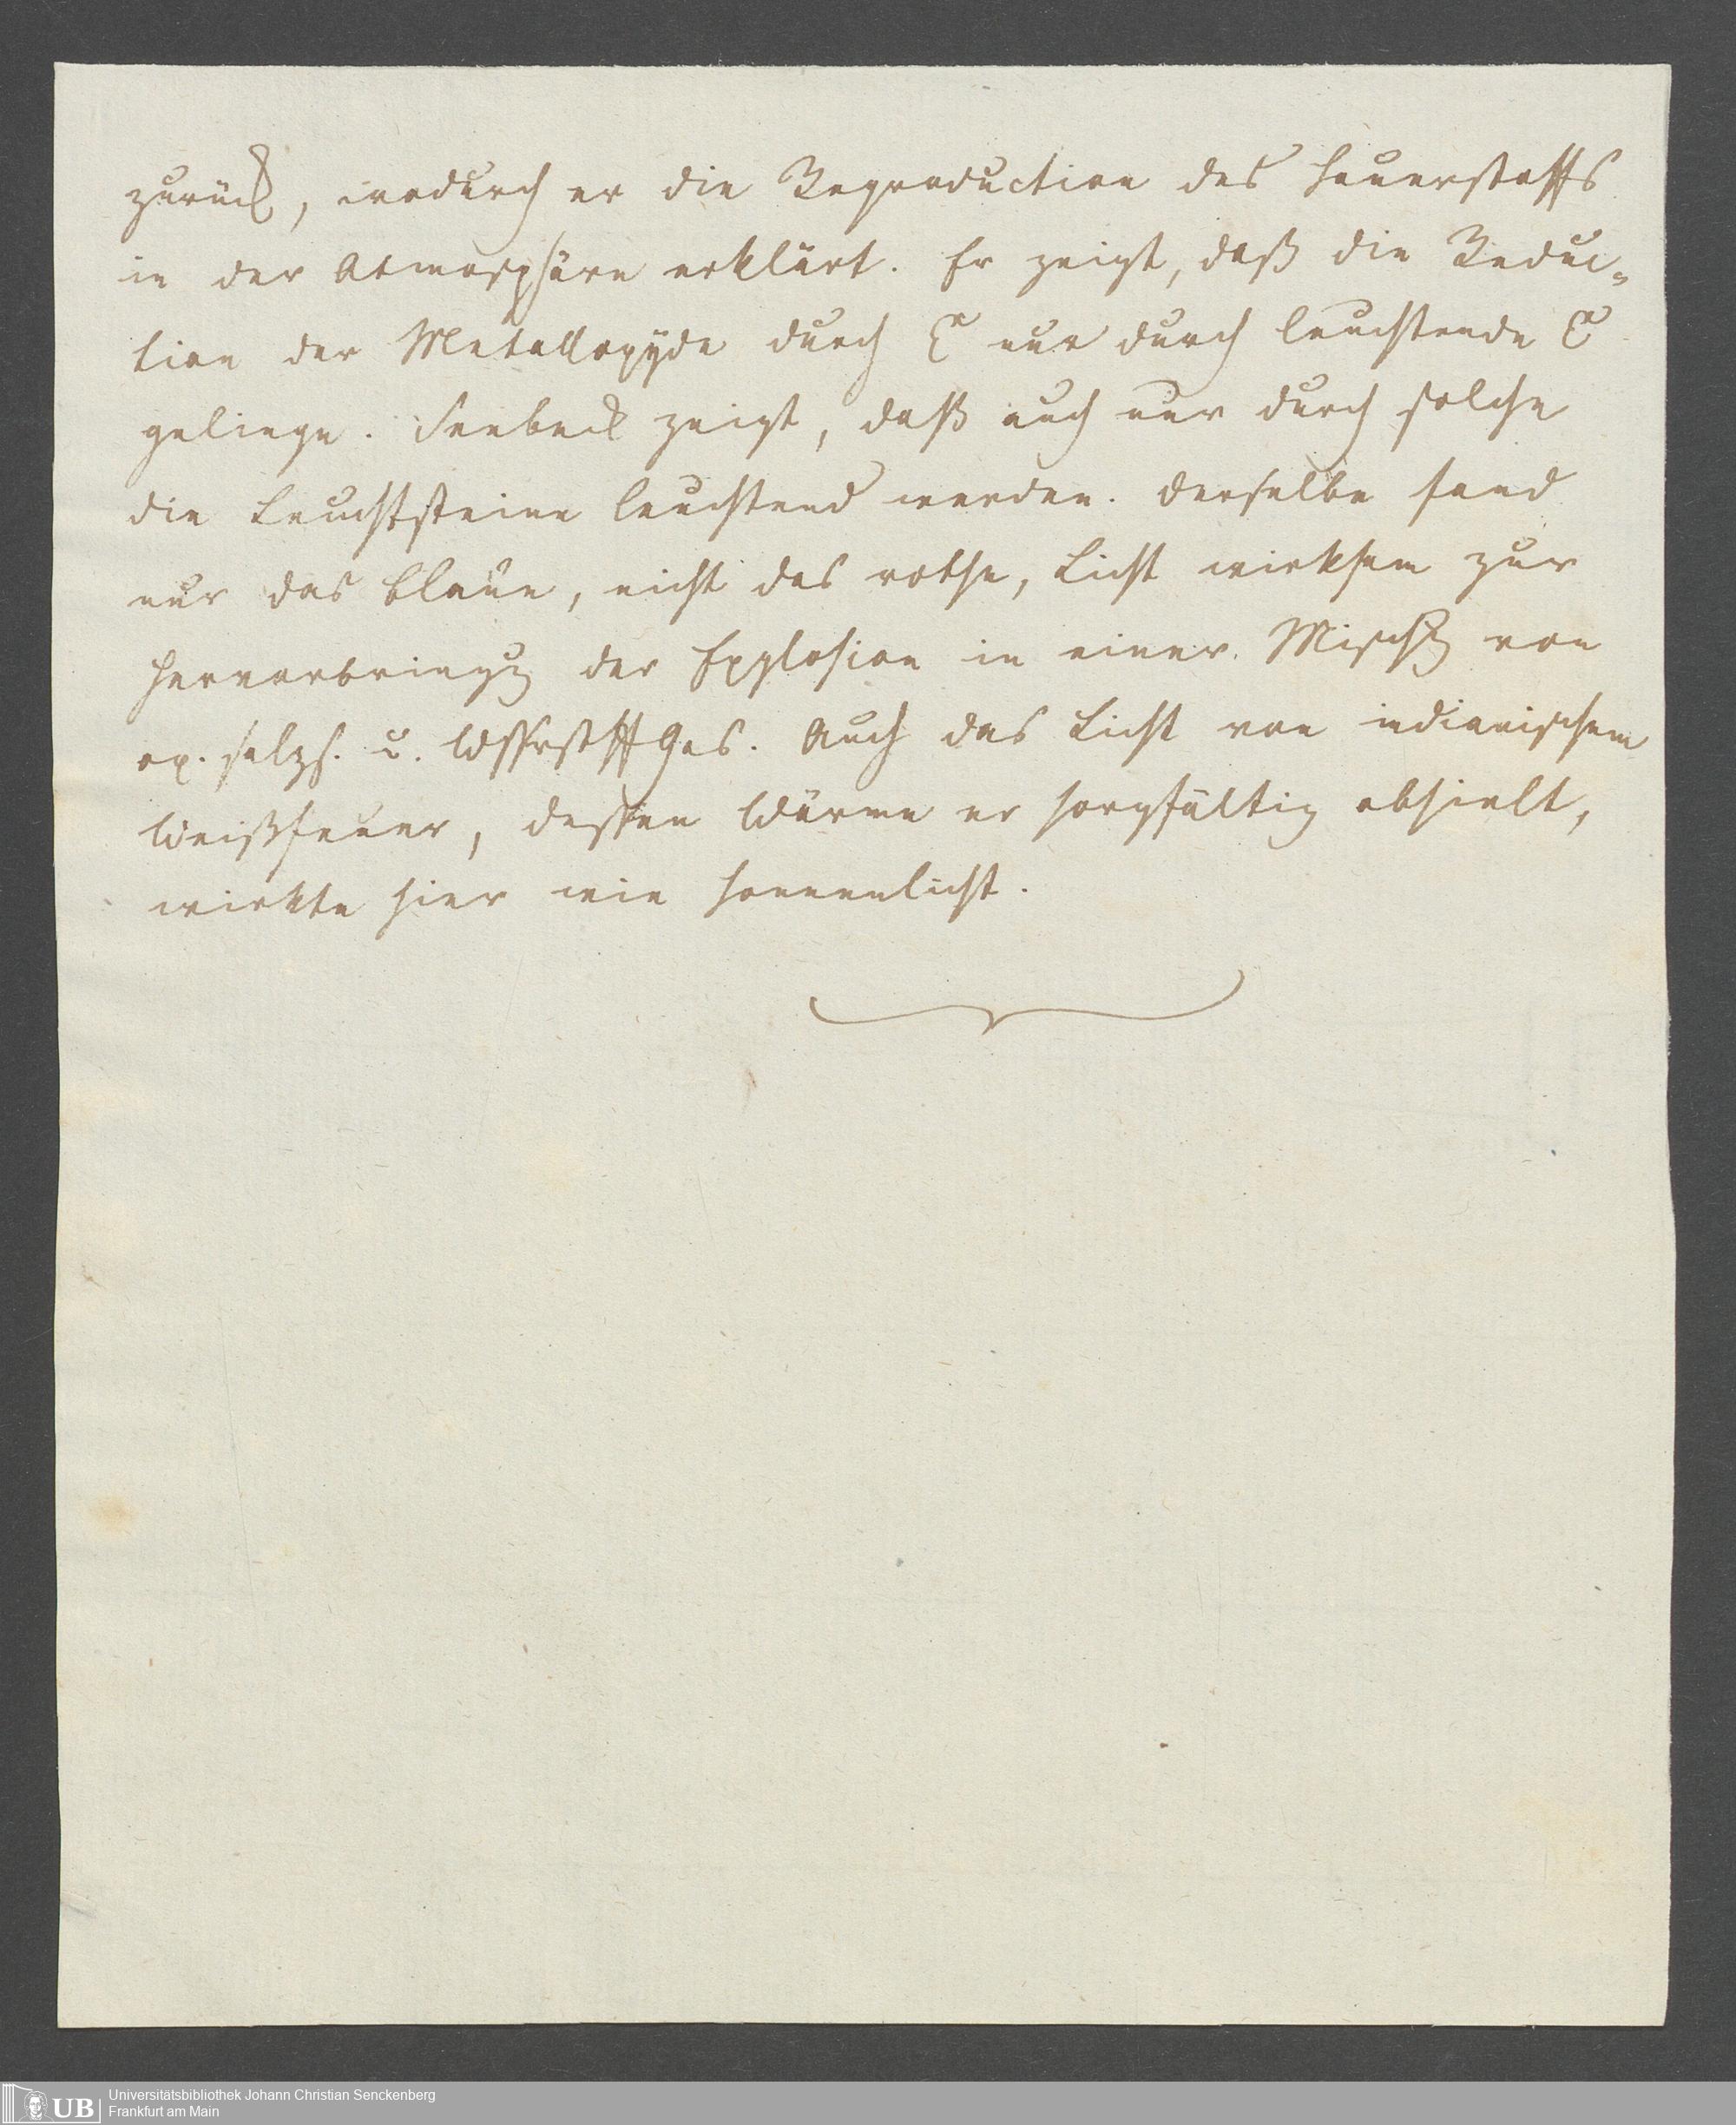 zurück, wodurch er die Reproduction des Sauerstoffs
in der Atmosphäre erklärt. Er zeigt, daß die Reduc-
tion der Metalloxyde durch nur durch leuchtende
gelinge. Seebeck zeigt, daß auch nur durch solche
die Leuchtsteine leuchtend werden. Derselbe fand
nur das blaue, nicht das rothe, Licht wirksam zur
Hervorbringg der Explosion in einer Mischg von
ox. salzs. u. Wssrstff Gas. Auch das Licht von indianischem
Weißfeuer, dessen Wärme er sorgfältig abhielt,
wirkte hier wie Sonnenlicht.
UB Universitätsbibliothek Johann Christian Senckenberg
Frankfurt am Main